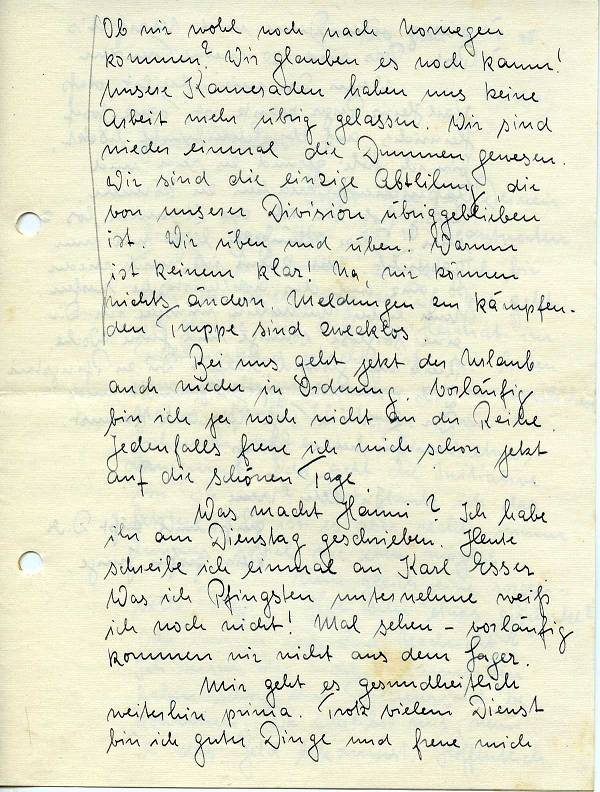 Ob wir wohl noch nach Norwegen
kommen? Wir glauben es noch kaum!
Unsere Kameraden haben uns keine
Arbeit mehr übrig gelassen. Wir sind
wieder einmal die Dummen gewesen.
Wir sind die einzige Abtlilung, die
von unserer Division übriggeblieben
ist. Wir üben und üben! Warum
ist keinem klar! Na, wir können
nichts ändern. Meldungen zur kämpfen-
den Truppe sind zwecklos.
Bei uns geht jetzt der Urlaub
auch wieder in Ordnung. Vorläufig
bin ich ja noch nicht an der Reihe.
Jedenfalls freue ich mich schon jetzt
auf die schönen Tage
Was macht Hanni? Ich habe
ihr am Dienstag geschrieben. Heute
schreibe ich einmal an Karl Esser.
Was ich Pfingsten unternehme weiß
ich noch nicht! Mal sehen – vorläufig
kommen wir nicht aus dem Lager.
Mir geht es gesundheitlich
weiterhin prima. Trotz vielem Dienst
bin ich guter Dinge und freue mich